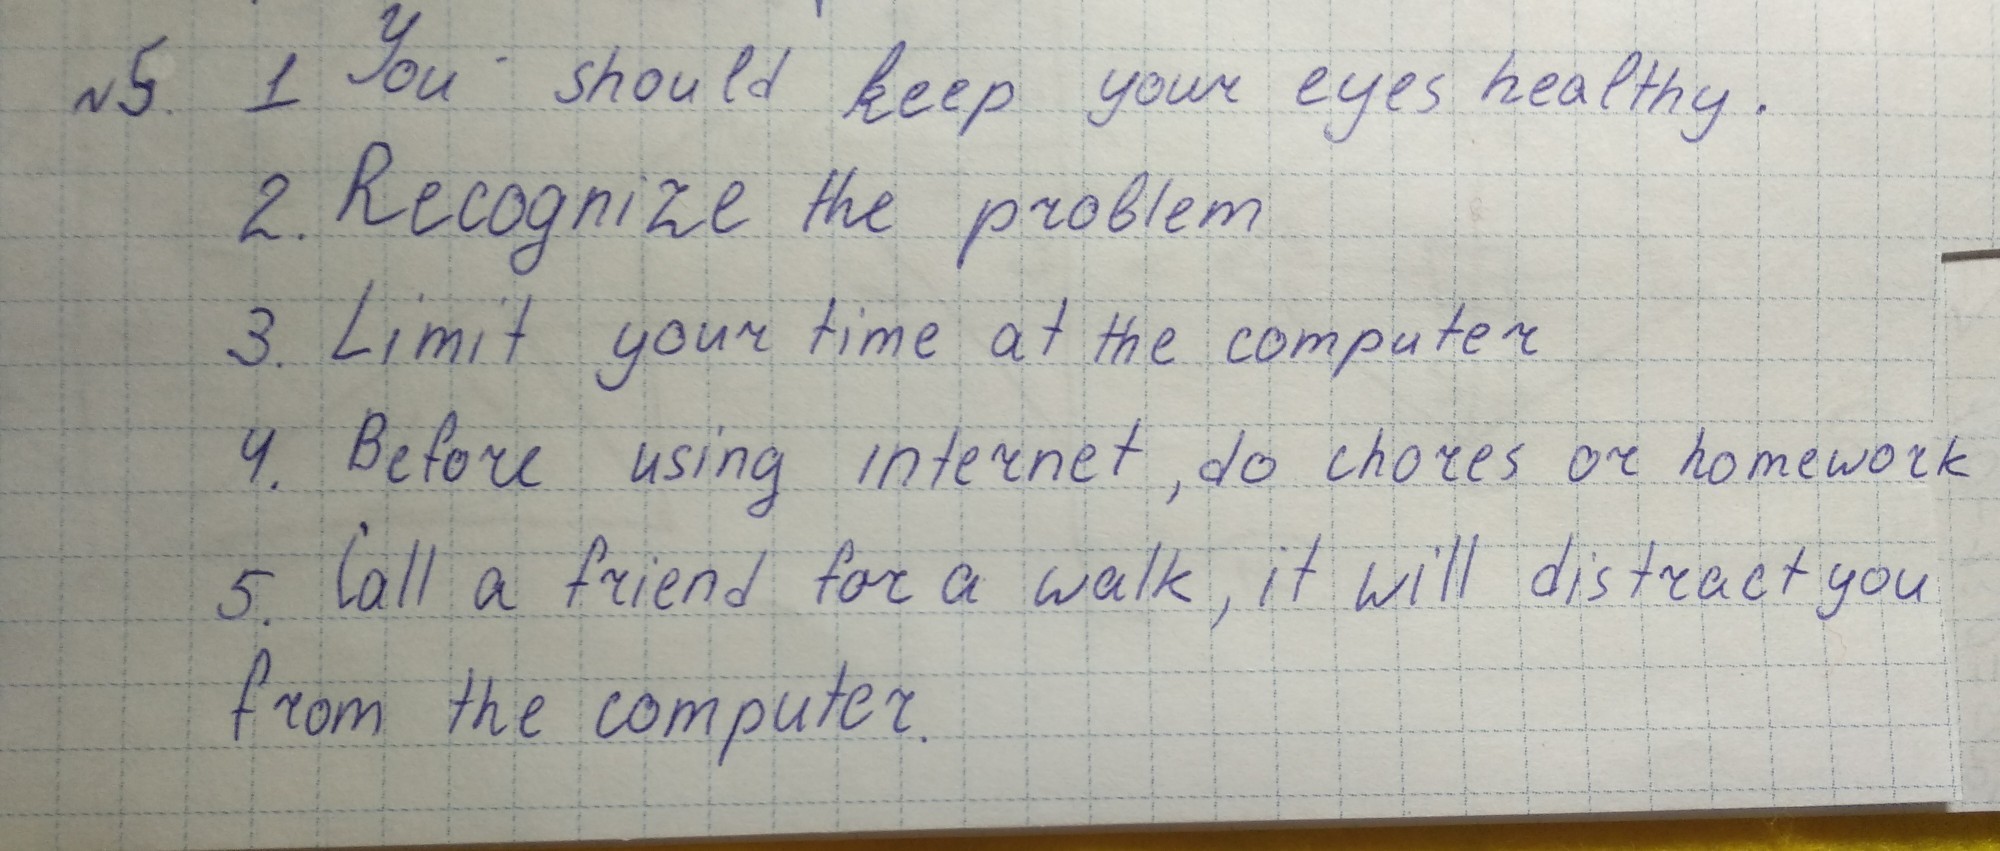 №5. 1 You should keep your eyes healthy.
2. Recognize the problem
3. Limit your time at the computer
4. Before using internet, do chores or homework
5. Call a friend for a walk, it will distract you
from the computer.